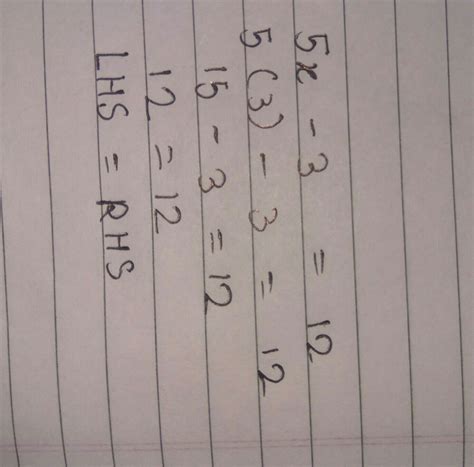 5x - 3 = 12
5 (3) - 3 = 12
15 - 3 = 12
12 = 12
LHS = RHS